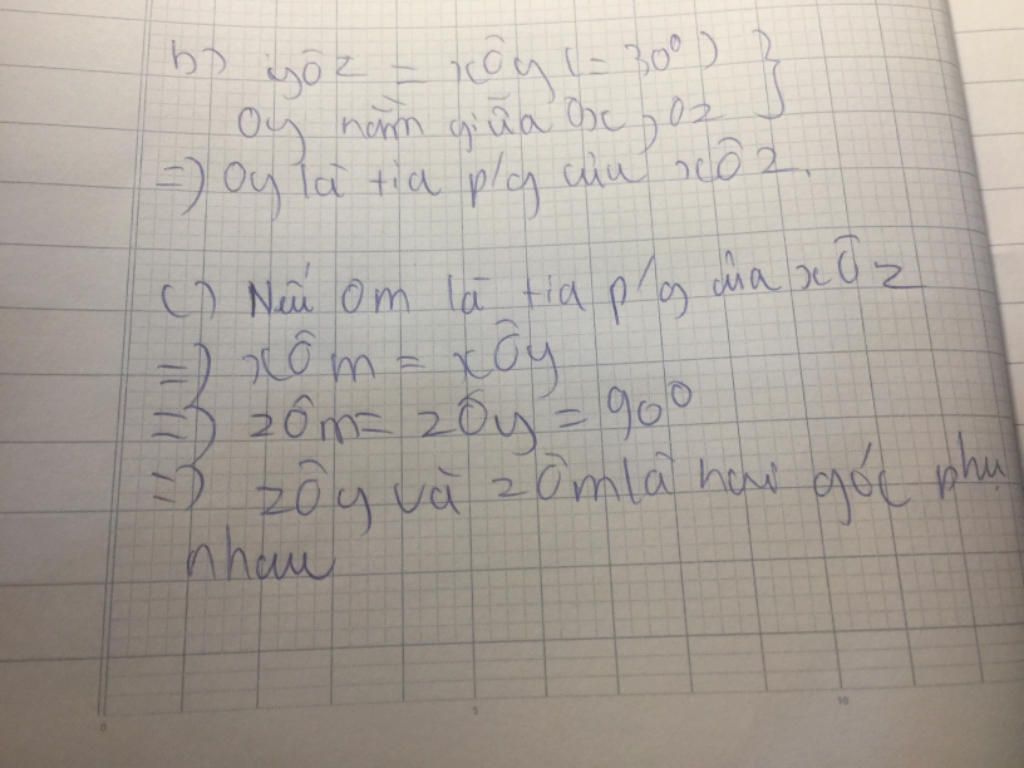 b) yÔz = xÔy (= 30°) }
Oy nằm giữa Ox, Oz
=) Oy là tia p/g của xÔz.
c) Nếu Om là tia p/g của xÔz
=) xÔm = xÔy
=) zÔm = zÔy = 90°
=) zÔy và zÔm là hai góc phụ
nhau
0 5 10